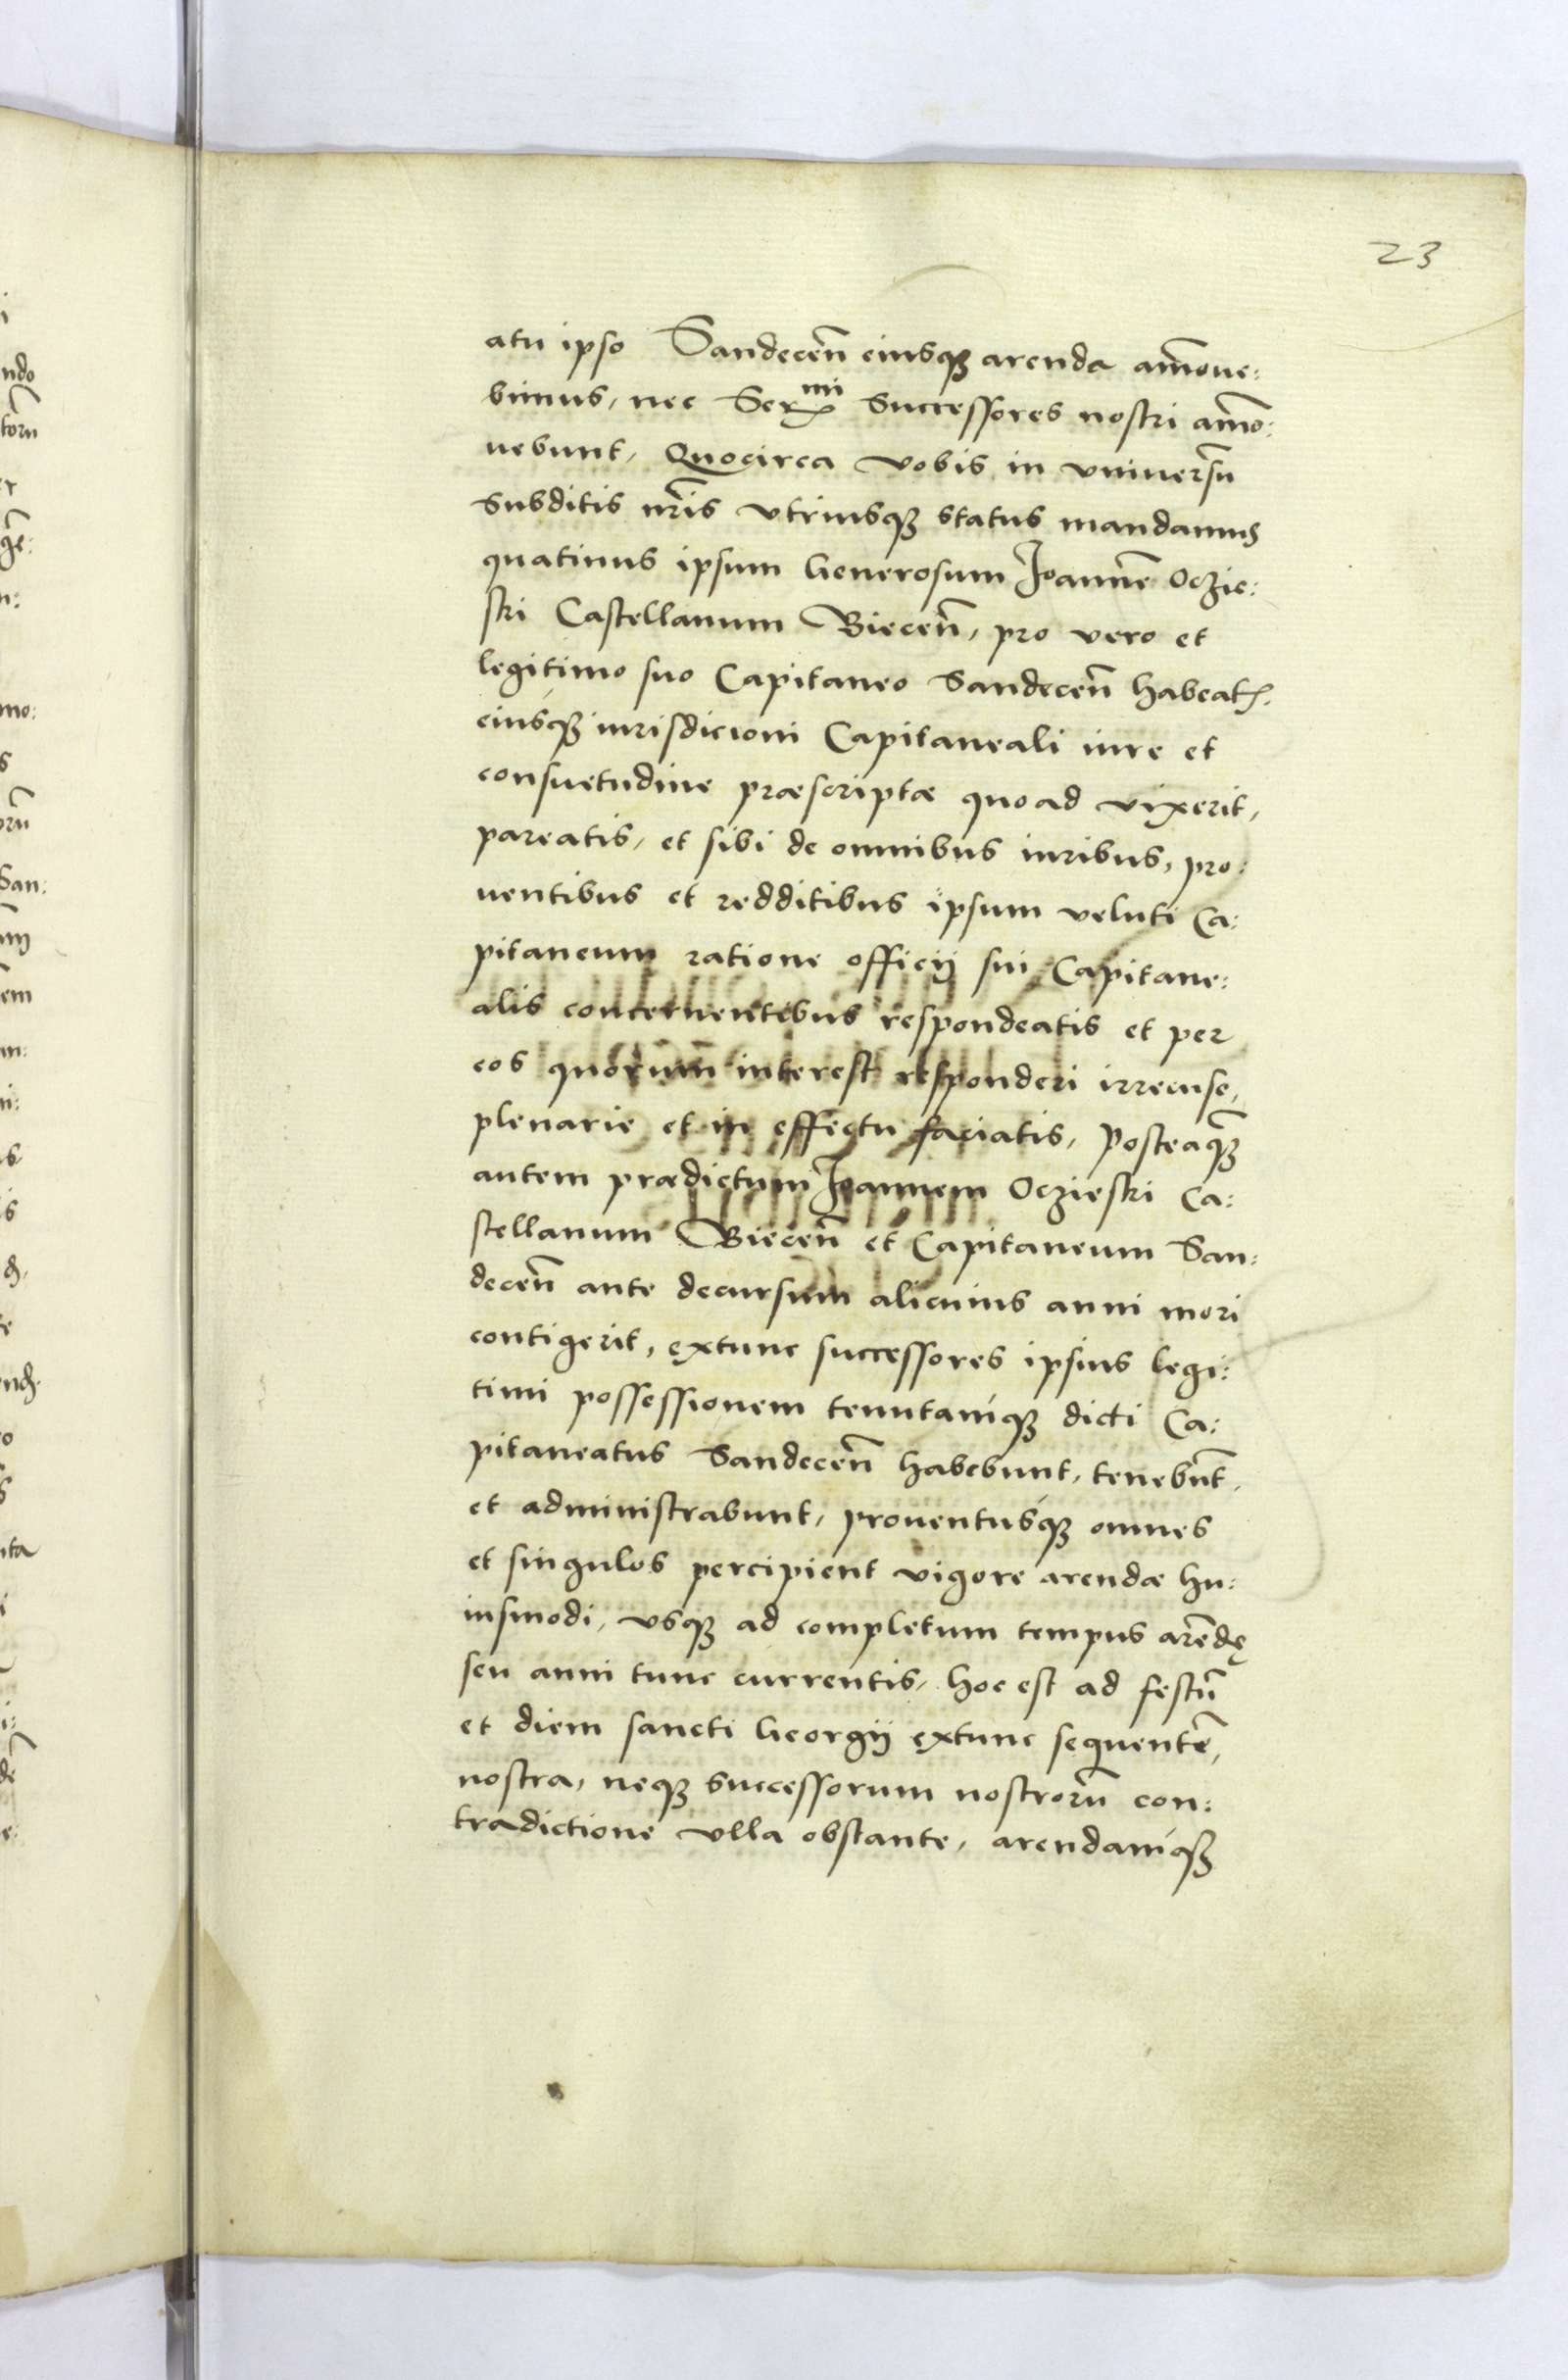 23
atu ipso Sandeceñ eiusqꝫ arenda am̃oue:
bimus, nec Serᵐⁱ Successores nostri am̃o:
uebunt, Quocirca vobis in vniuersũ
subditis nr̃is vtriusqꝫ status mandamus
quatinus ipsum Generosum Joannẽ Oczie:
ski Castellanum Bieceñ, pro vero et
legitimo suo Capitaneo Sandeceñ habeatꝭ.
eiusqꝫ iurisdicioni Capitaneali iure et
consuetudine præscriptæ quoad vixerit,
pareatis, et sibi de omnibus iuribus, pro:
uentibus et redditibus ipsum veluti Ca:
pitaneum ratione officij sui Capitane:
alis concernentibus respondeatis et per
eos quorum interest responderi irrecuse,
plenarie et in effectu faciatis, Posteaqꝫ̃
autem prædictum Joannem Oczieski Ca:
stellanum Bieceñ et Capitaneum San:
deceñ ante decursum alicuius anni mori
contigerit, extunc successores ipsius legi:
timi possessionem tenutamqꝫ dicti Ca:
pitaneatus Sandeceñ habebunt, tenebũt,
et administrabunt, prouentusqꝫ omnes
et singulos percipient vigore arendæ hu:
iusmodi, vsqꝫ ad completum tempus arẽdę
seu anni tunc currentis, hoc est ad festũ
et diem sancti Georgij extunc sequentẽ,
nostra, neqꝫ successorum nostrorũ con:
tradictione vlla obstante, arendamqꝫ